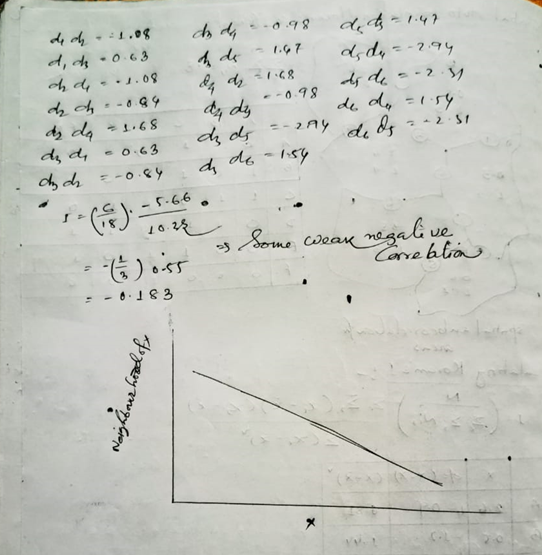 d1 d2 = -1.08
d1 d3 = 0.63
d2 d1 = -1.08
d2 d3 = -0.84
d2 d4 = 1.68
d3 d1 = 0.63
d3 d2 = -0.84
d3 d4 = -0.98
d3 d5 = 1.47
d4 d2 = 1.68
d4 d3 = -0.98
d3 d5 = -2.94
d5 d6 = 1.54
d5 d3 = 1.47
d5 d4 = -2.94
d5 d6 = -2.31
d6 d4 = 1.54
d6 d5 = -2.31
I = (6/18) · -5.66/10.23
⇒ Some weak negative
Correlation
= -(1/3) 0.55
= -0.183
Neighbourhood of x
x